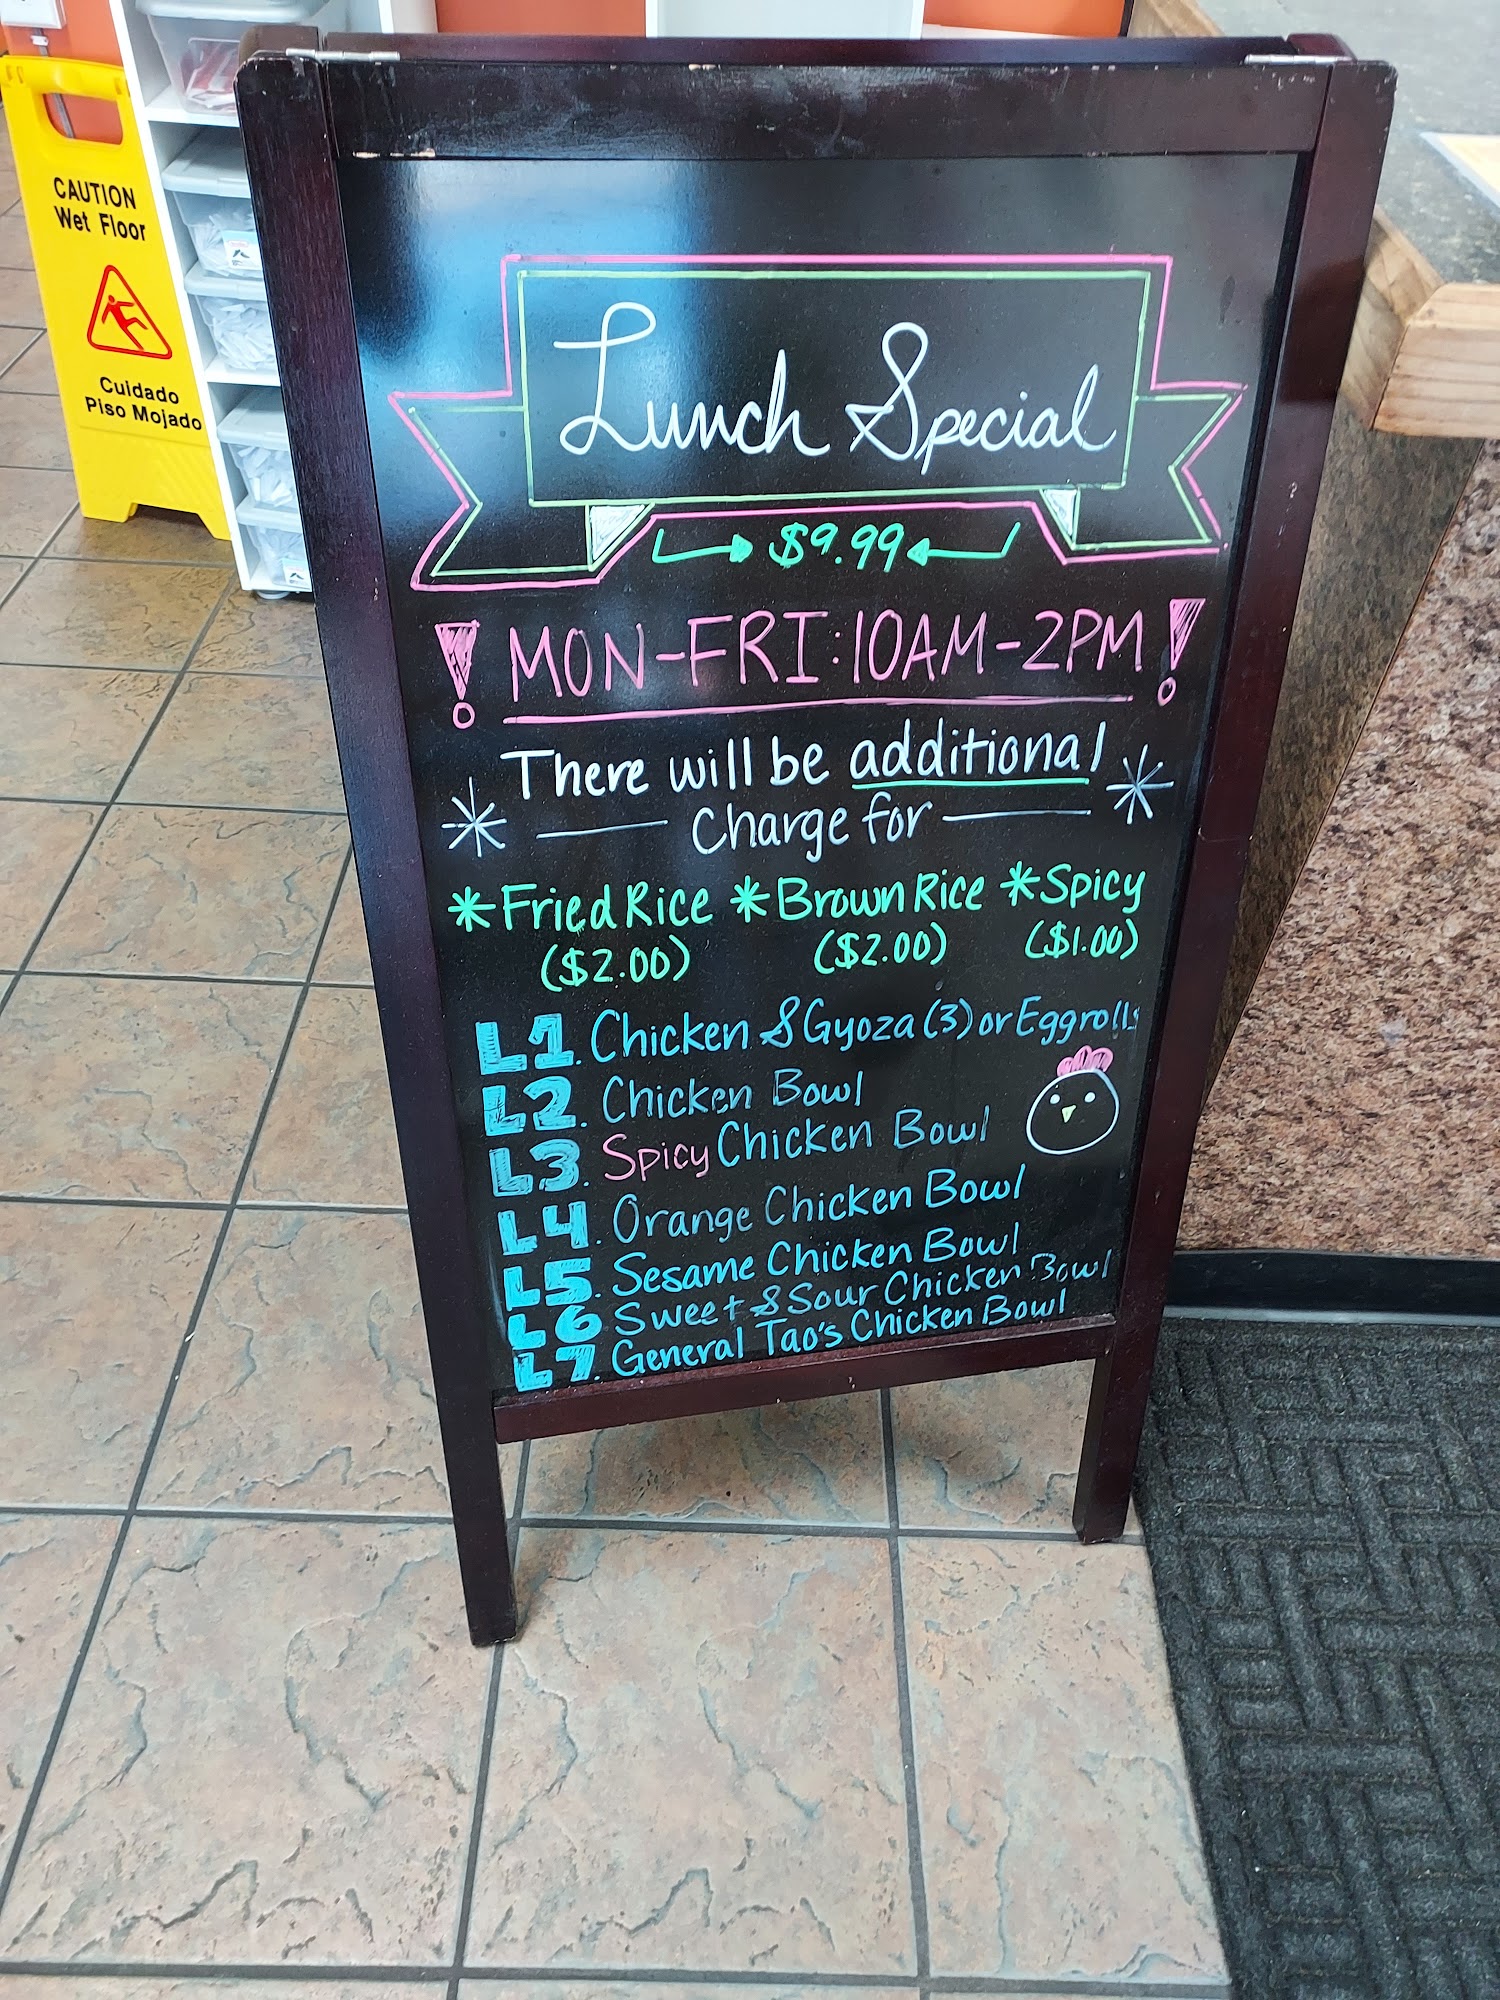 CAUTION
Wet Floor
Cuidado
Piso Mojado
Lunch Special
$9.99
MON-FRI: 10AM-2PM
There will be additional
Charge for
*Fried Rice *Brown Rice *Spicy
($2.00) ($2.00) ($1.00)
L1. Chicken & Gyoza (3) or Eggrolls
L2. Chicken Bowl
L3. Spicy Chicken Bowl
L4. Orange Chicken Bowl
L5. Sesame Chicken Bowl
L6 Sweet & Sour Chicken Bowl
L7. General Tao's Chicken Bowl